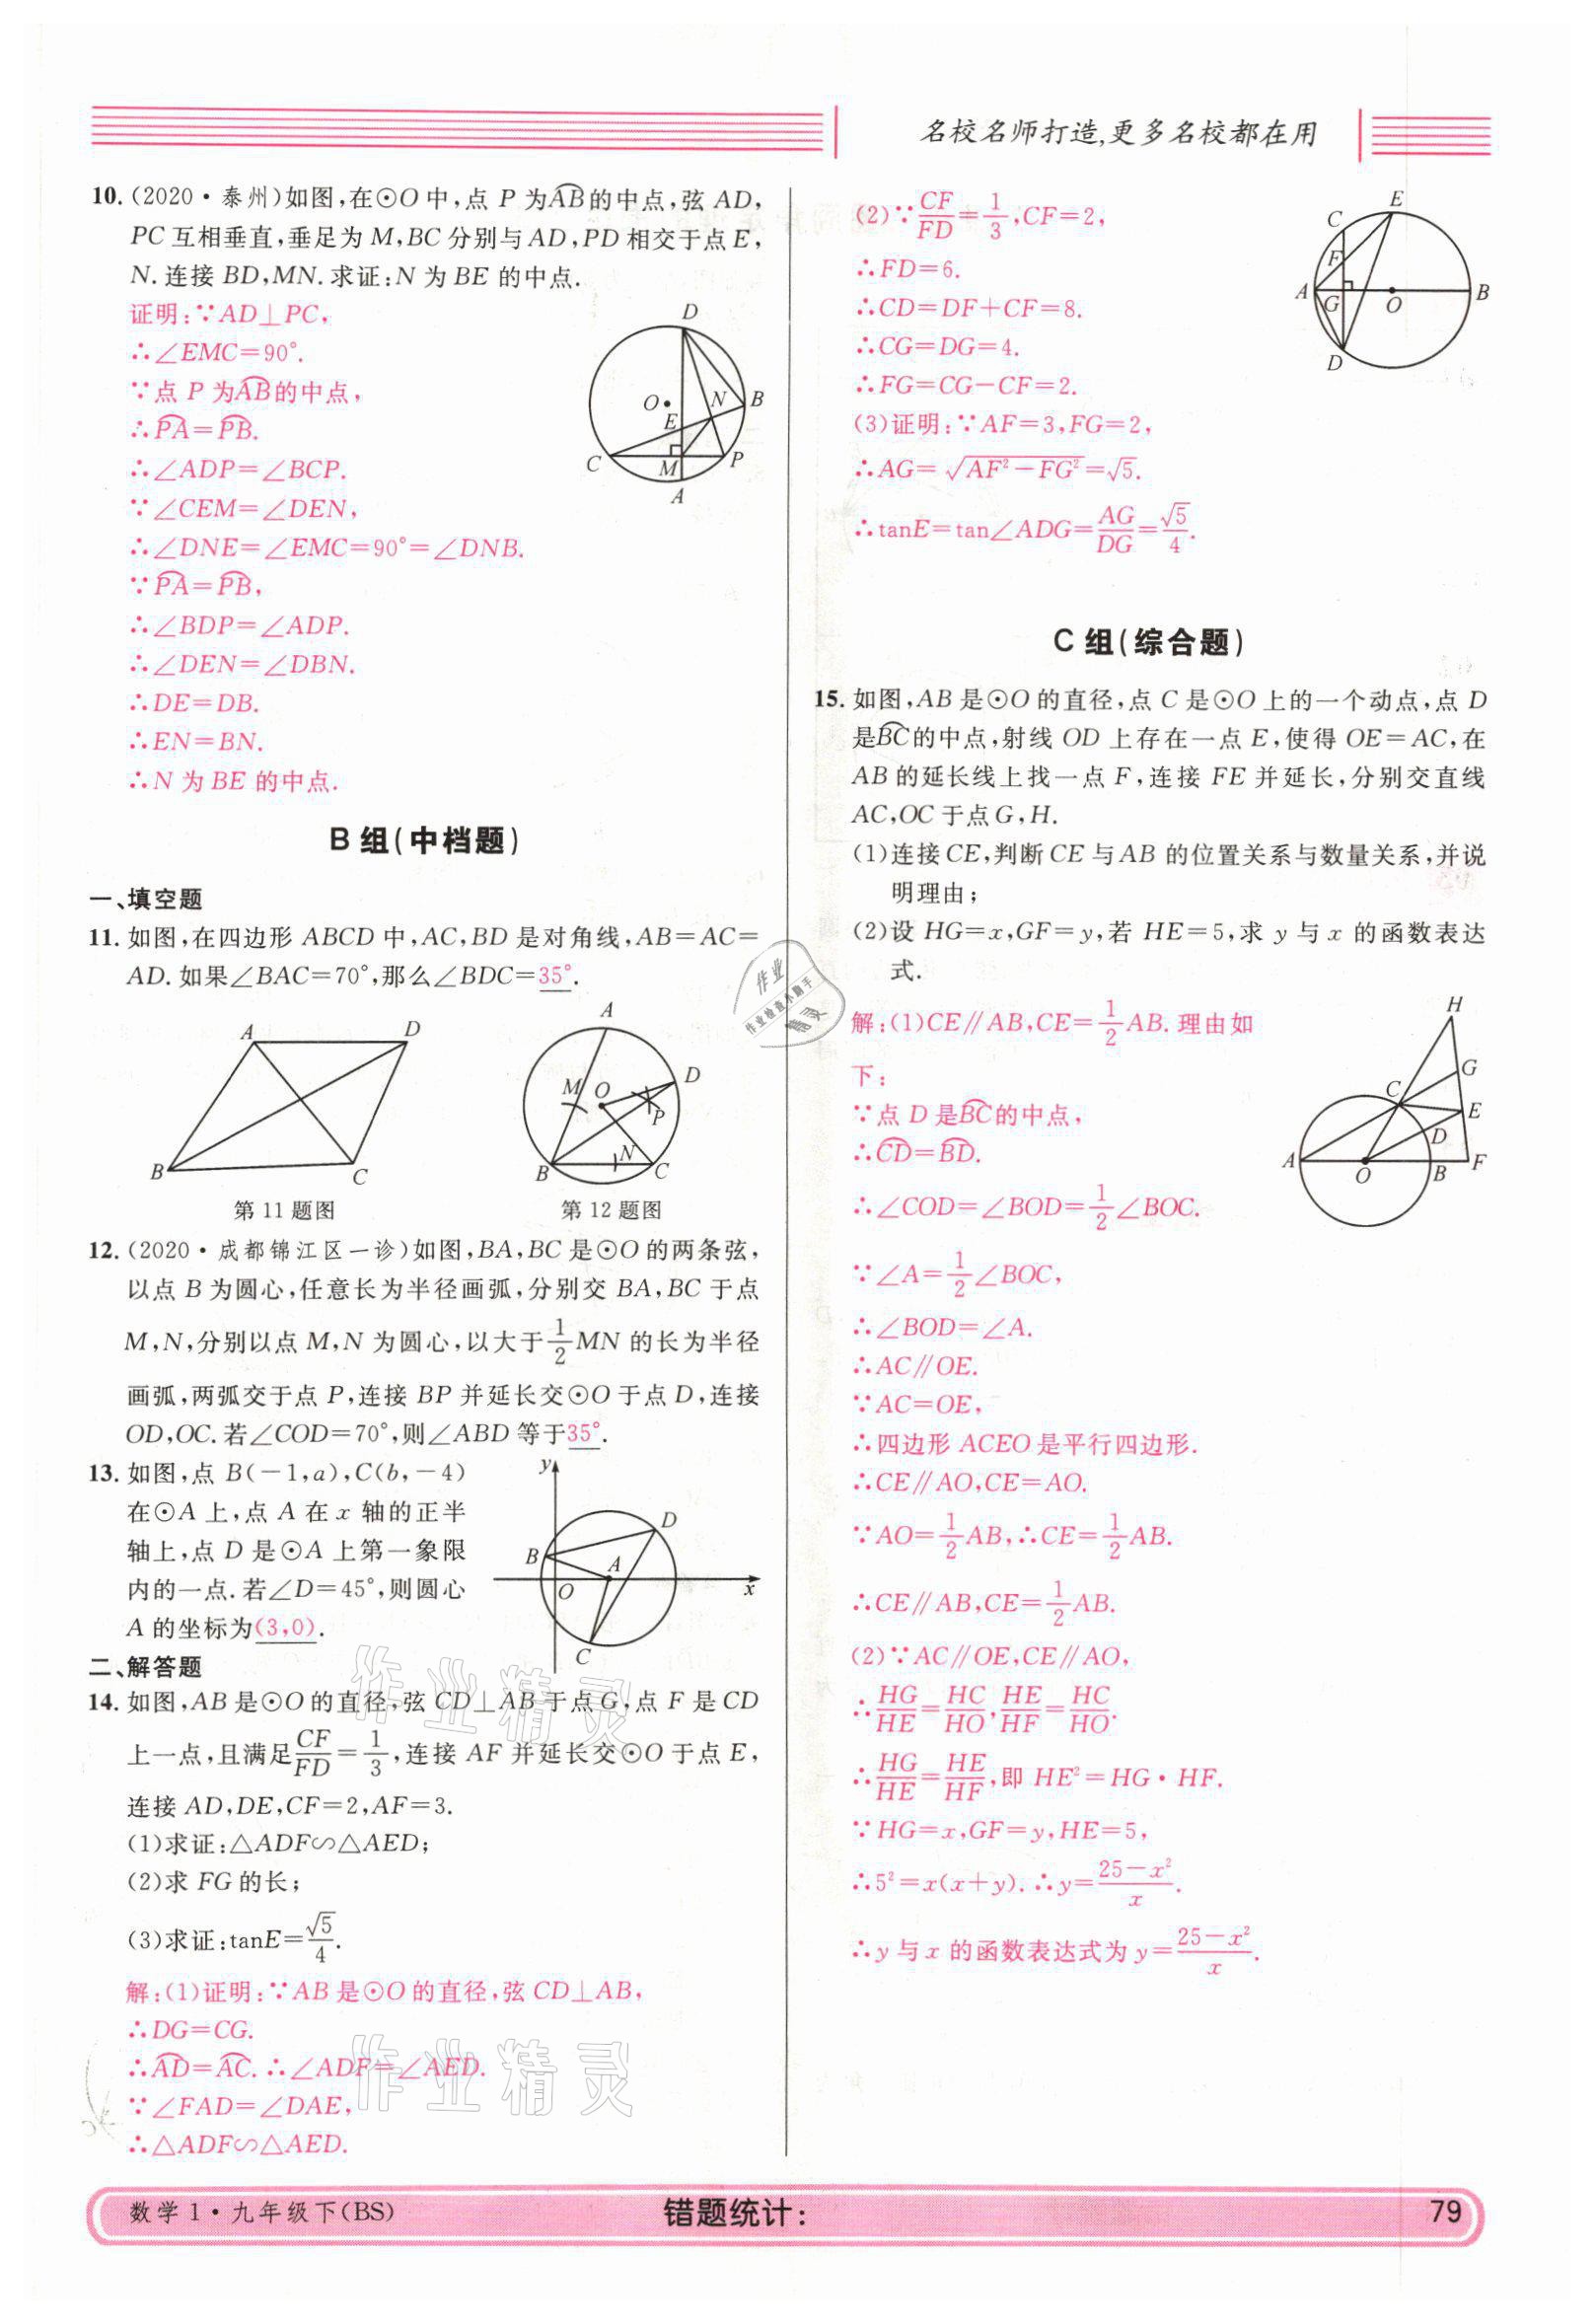 名校名师打造,更多名校都在用
10.(2020·泰州)如图,在⊙O中,点 P 为AB⌢的中点,弦 AD,
PC互相垂直,垂足为M,BC分别与AD,PD相交于点E,
N.连接 BD,MN.求证:N 为 BE 的中点.
证明:∵AD⊥PC,
∴∠EMC=90°.
∵点 P 为AB⌢的中点,
∴PA⌢=PB⌢.
∴∠ADP=∠BCP.
∵∠CEM=∠DEN,
∴∠DNE=∠EMC=90°=∠DNB.
∵PA⌢=PB⌢,
∴∠BDP=∠ADP.
∴∠DEN=∠DBN.
∴DE=DB.
∴EN=BN.
∴N 为 BE 的中点.
D
O
N
B
E
C
M
P
A
B 组(中档题)
一、填空题
11.如图,在四边形 ABCD 中,AC,BD 是对角线,AB=AC=
AD.如果∠BAC=70°,那么∠BDC=35°.
A
D
B
C
第 11 题图
A
M
O
D
P
N
B
C
第 12 题图
12.(2020·成都锦江区一诊)如图,BA,BC是⊙O的两条弦,
以点 B 为圆心,任意长为半径画弧,分别交 BA,BC 于点
M,N,分别以点 M,N 为圆心,以大于1/2MN 的长为半径
画弧,两弧交于点 P,连接 BP 并延长交⊙O于点 D,连接
OD,OC.若∠COD=70°,则∠ABD 等于35°.
13.如图,点 B(-1,a),C(b,-4)
在⊙A 上,点 A 在 x 轴的正半
轴上,点 D 是⊙A 上第一象限
内的一点.若∠D=45°,则圆心
A 的坐标为(3,0).
y
D
B
A
O
x
C
二、解答题
14.如图,AB是⊙O的直径,弦 CD⊥AB 于点 G,点 F 是 CD
上一点,且满足CF/FD=1/3,连接 AF 并延长交⊙O于点 E,
连接 AD,DE,CF=2,AF=3.
(1)求证:△ADF∽△AED;
(2)求 FG 的长;
(3)求证:tanE=√5/4.
解:(1)证明:∵AB是⊙O的直径,弦CD⊥AB,
∴DG=CG.
∴AD⌢=AC⌢.∴∠ADF=∠AED.
∵∠FAD=∠DAE,
∴△ADF∽△AED.
(2)∵CF/FD=1/3,CF=2,
∴FD=6.
∴CD=DF+CF=8.
∴CG=DG=4.
∴FG=CG-CF=2.
(3)证明:∵AF=3,FG=2,
∴AG=√(AF²-FG²)=√5.
∴tanE=tan∠ADG=AG/DG=√5/4.
E
C
F
A
G
O
B
D
C 组(综合题)
15.如图,AB是⊙O的直径,点C是⊙O上的一个动点,点 D
是BC⌢的中点,射线 OD 上存在一点 E,使得 OE=AC,在
AB的延长线上找一点 F,连接 FE 并延长,分别交直线
AC,OC于点G,H.
(1)连接CE,判断CE与AB 的位置关系与数量关系,并说
明理由;
(2)设 HG=x,GF=y,若 HE=5,求 y 与 x 的函数表达
式.
解:(1)CE∥AB,CE=1/2AB.理由如
下:
∵点 D 是BC⌢的中点,
∴CD⌢=BD⌢.
∴∠COD=∠BOD=1/2∠BOC.
∵∠A=1/2∠BOC,
∴∠BOD=∠A.
∴AC∥OE.
∵AC=OE,
∴四边形 ACEO 是平行四边形.
∴CE∥AO,CE=AO.
∵AO=1/2AB,∴CE=1/2AB.
∴CE∥AB,CE=1/2AB.
(2)∵AC∥OE,CE∥AO,
∴HG/HE=HC/HO,HE/HF=HC/HO.
∴HG/HE=HE/HF,即 HE²=HG·HF.
∵HG=x,GF=y,HE=5,
∴5²=x(x+y).∴y=(25-x²)/x.
∴y 与 x 的函数表达式为 y=(25-x²)/x.
H
G
C
E
D
A
O
B
F
作业
作业检查小助手
精灵
作业精灵
作业精灵
数学 1·九年级下(BS)
错题统计:
79